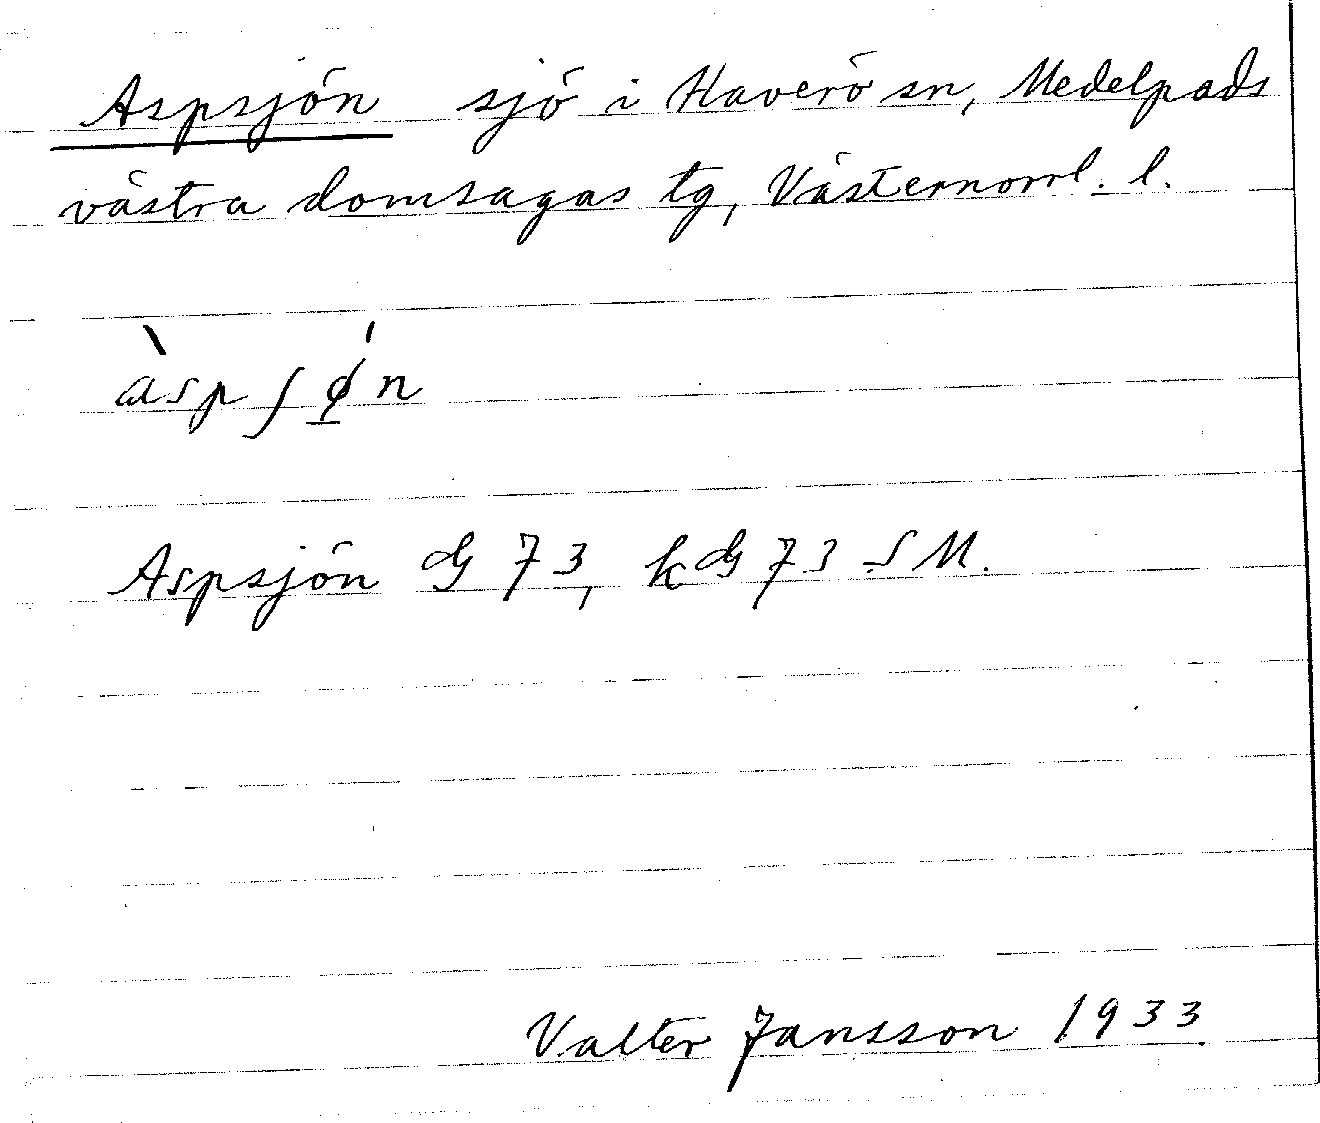 Aspsjön sjö i Haverö sn, Medelpads
västra domsagas tg, Västernorrl. l.
àspʃǿn
Aspsjön G 73, kG 73 SM.
Valter Jansson 1933.